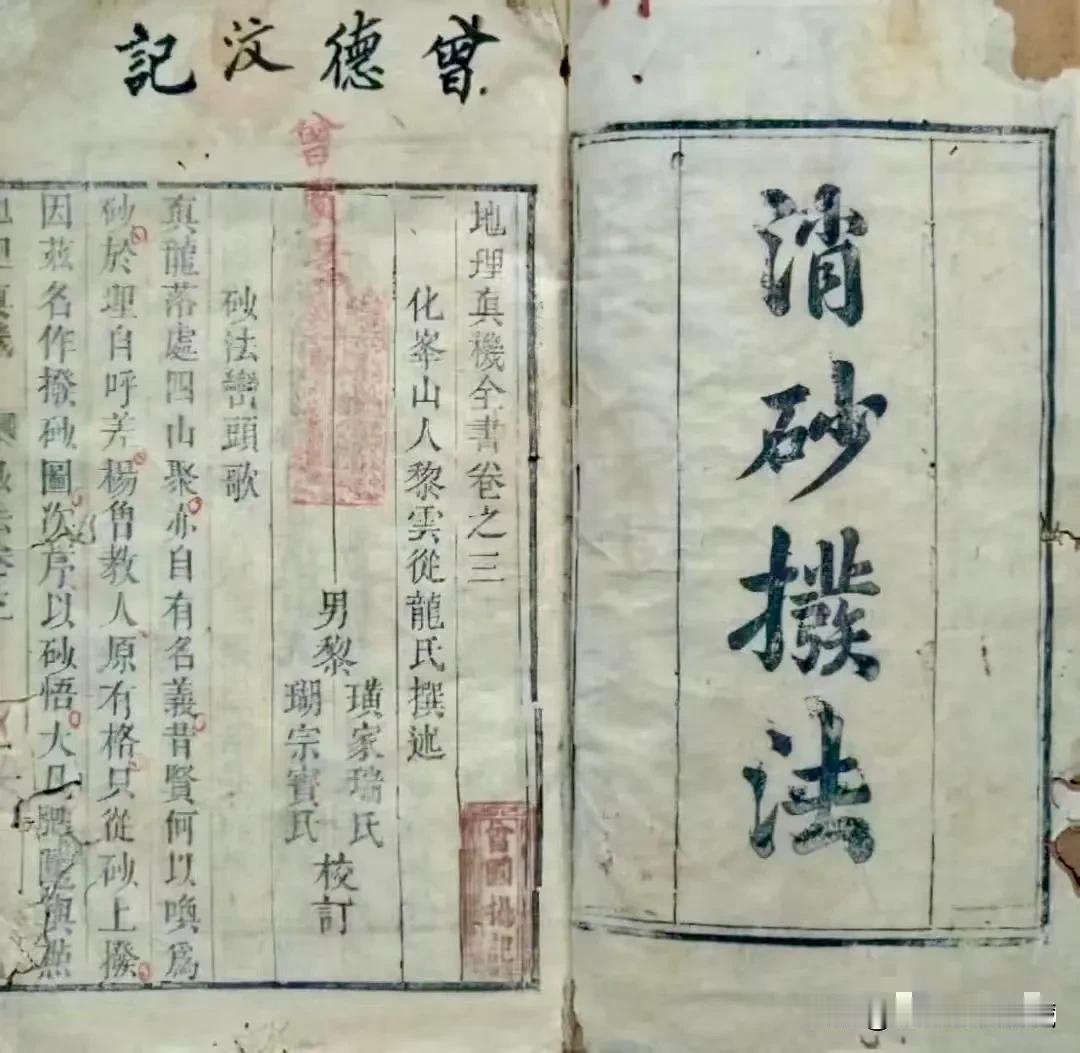 消砂撥法
曾德汶記
地理真機全書卷之三
一化峯山人黎雲從龍氏撰述
男黎
璜家瑞氏
瑚宗寶氏
校訂
砂法巒頭歌
真龍落處四山聚亦自有名義昔賢何以喚爲
砂於理自呼差楊曾教人原有格只從砂上撥
因茲名作撥砂圖次序以砂悟大凡
曾國揚記